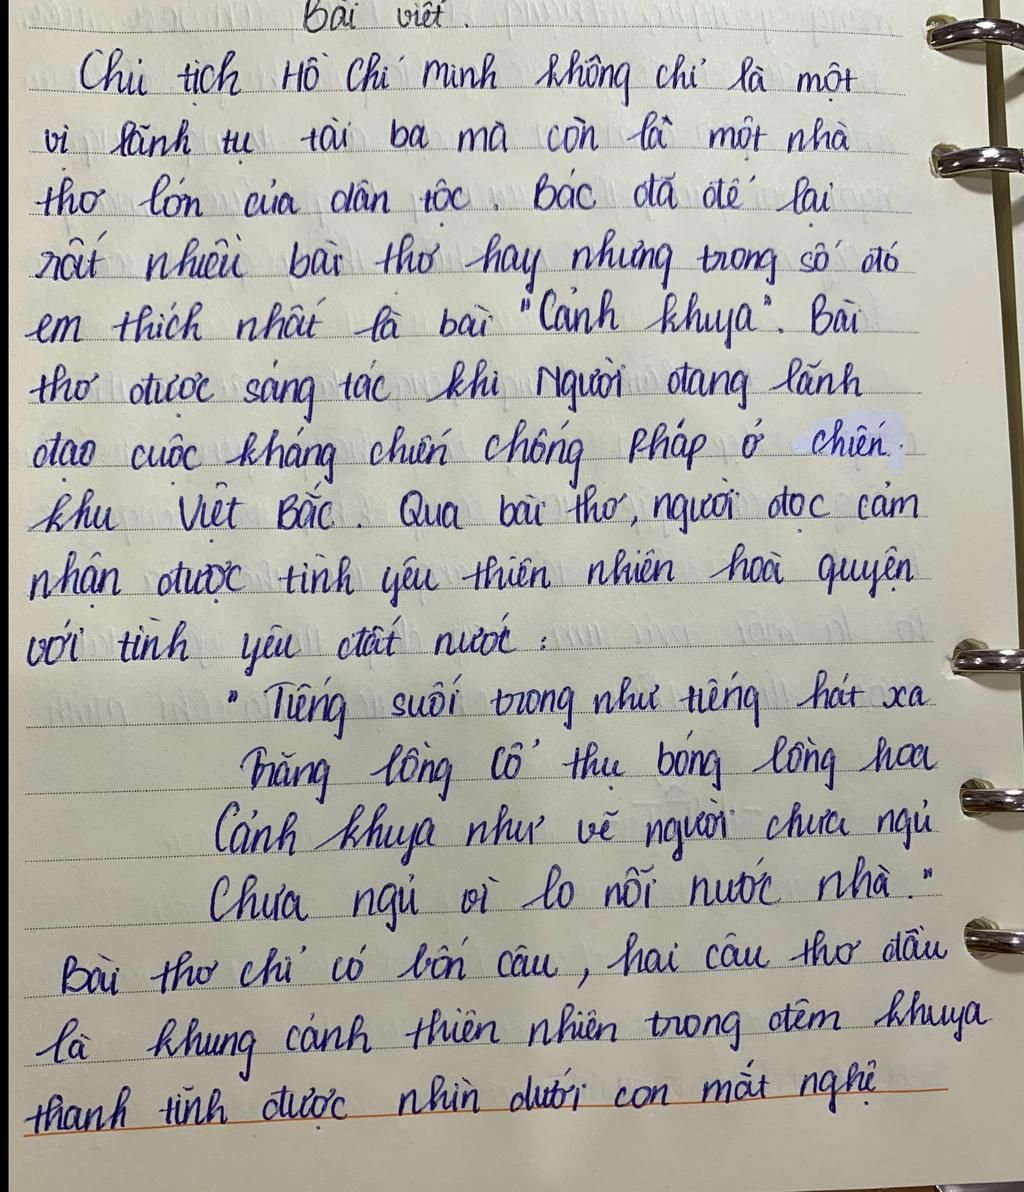 Bài viết.
Chủ tịch Hồ Chí Minh không chỉ là một
vị lãnh tụ tài ba mà còn là một nhà
thơ lớn của dân tộc. Bác đã để lại
rất nhiều bài thơ hay nhưng trong số đó
em thích nhất là bài "Cảnh khuya". Bài
thơ được sáng tác khi Người đang lãnh
đạo cuộc kháng chiến chống Pháp ở chiến
khu Việt Bắc. Qua bài thơ, người đọc cảm
nhận được tình yêu thiên nhiên hoà quyện
với tình yêu đất nước:
"Tiếng suối trong như tiếng hát xa
Trăng lồng cổ thụ bóng lồng hoa
Cảnh khuya như vẽ người chưa ngủ
Chưa ngủ vì lo nỗi nước nhà."
Bài thơ chỉ có bốn câu, hai câu thơ đầu
là khung cảnh thiên nhiên trong đêm khuya
thanh tĩnh được nhìn dưới con mắt nghệ